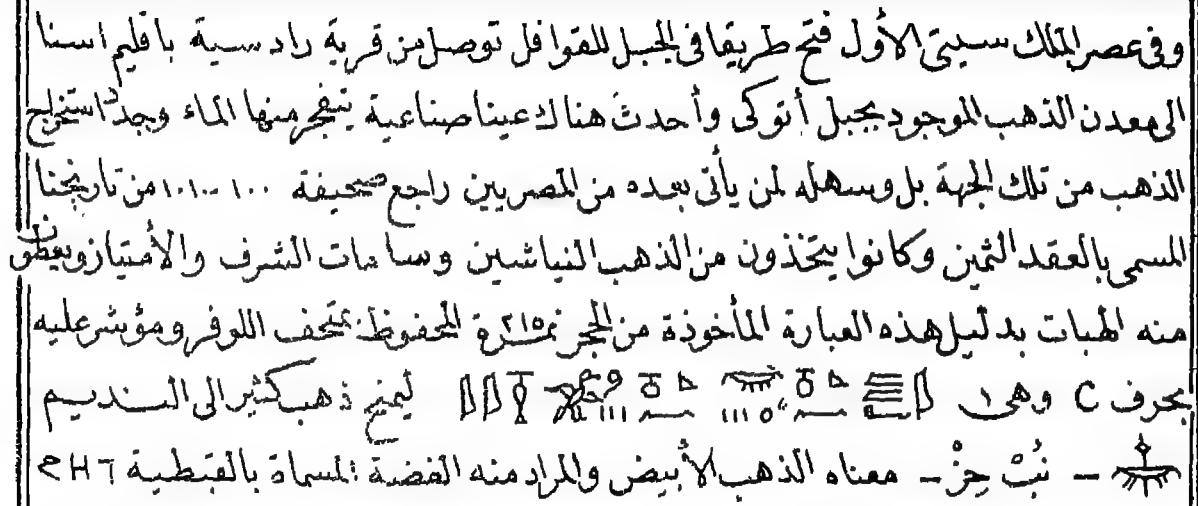 وفى عصر الملك سيتى الأول فتح طريقا فى الجبل للقوافل توصل من قرية رادسية باقليم اسنا
الى معدن الذهب الموجود بجبل أتوكى وأحدث هناك عينا صناعية ينفجر منها الماء وجدّ استخراج
الذهب من تلك الجهة بل وسهله لمن يأتى بعده من المصريين راجع صحيفة ١٠٠-١٠١ من تاريخنا
المسمى بالعقد الثمين وكانوا يتخذون من الذهب النياشين وسامات الشرف والأمتياز ويعطون
منه الهبات بدليل هذه العبارة المأخوذة من الحجر نمرة ٢١٥ المحفوظ بمتحف اللوفر ومؤشر عليه
بحرف C وهى ليمنح ذهب كثير الى النديم
— نُبْ حِزْ — معناه الذهب الأبيض والمراد منه الفضة المسماة بالقبطية